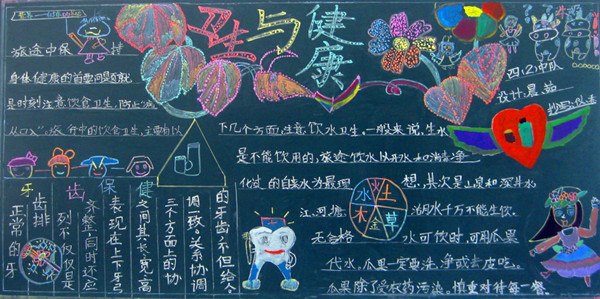 卫与健康
旅途中保
身体健康的首要问题就
是时刻注意饮食卫生,防止"病
从口入"。旅行中的饮食卫生,主要有以
下几个方面,注意饮水卫生,一般来说,生水
是不能饮用的,旅途饮水以开水和消毒净
化过的自来水为最理想,其次是山泉和深井水
江、河、塘、湖水千万不能生饮,
无合格水可饮时,可用瓜果
代水。瓜果一定要洗净或去皮吃。
瓜果除了受农药污染,慎重对待每一餐。
四(2)中队
设计:晨喆
水
土
木
金
草
牙齿保健
正常的牙
齿排列不仅仅是
齐整,同时还应
表现在上下牙弓
之间其长宽高
三个方面上的协
调一致。关系协调
的牙齿,不但给人